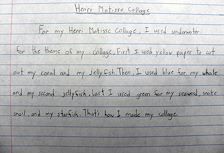 Henri Matisse Collage
For my Henri Matisse Collage, I used underwater
for the theme of my collage. First I used yellow paper to cut
out my coral and my jellyfish. Then, I used blue for my whale
and my second jellyfish. Last I used green for my seaweed, snake
snail, and my starfish. That's how I made my collage.